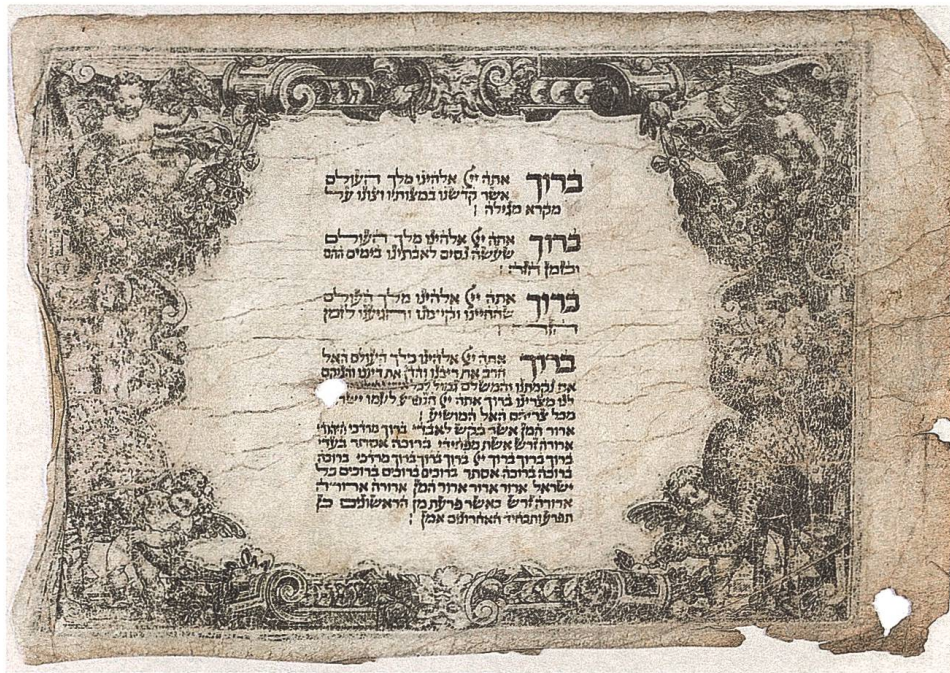 ברוך אתה ייי אלהינו מלך העולם
אשר קדשנו במצותיו וצונו על
מקרא מגילה :
ברוך אתה ייי אלהינו מלך העולם
שעשה נסים לאבתינו בימים ההם
ובזמן הזה :
ברוך אתה ייי אלהינו מלך העולם
שהחיינו וקיימנו והגיענו לזמן
הזה :
ברוך אתה ייי אלהינו מלך העולם האל
הרב את ריבנו והדן את דיננו והנוקם
את נקמתנו והמשלם גמול
לנו מצרינו ברוך אתה ייי הנפרע לעמו ישראל
מכל צריהם האל המושיע :
ארור המן אשר בקש לאבדי ברוך מרדכי היהודי
ארורה זרש אשת מפחידי ברוכה אסתר בעדי
ברוך ברוך ברוך ייי ברוך ברוך ברוך מרדכי ברוכה
ברוכה ברוכה אסתר ברוכים ברוכים ברוכים כל
ישראל ארור ארור ארור המן ארורה ארורה
ארורה זרש כאשר פרעת מן הראשונים כן
תפרע מן האחרונים אמן :